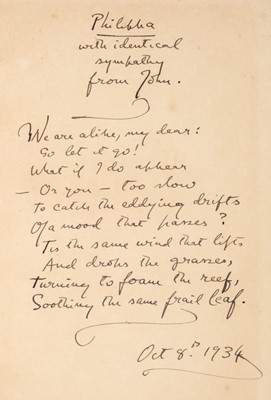 Philippa
with identical
sympathy
from John.
We are alike, my dear:
So let it go!
What if I do appear
— Or you — too slow
To catch the eddying drifts
Of a mood that passes?
Tis the same wind that lifts
And drops the grasses,
Turning to foam the reef,
Soothing the same frail leaf.
Oct 8th. 1934